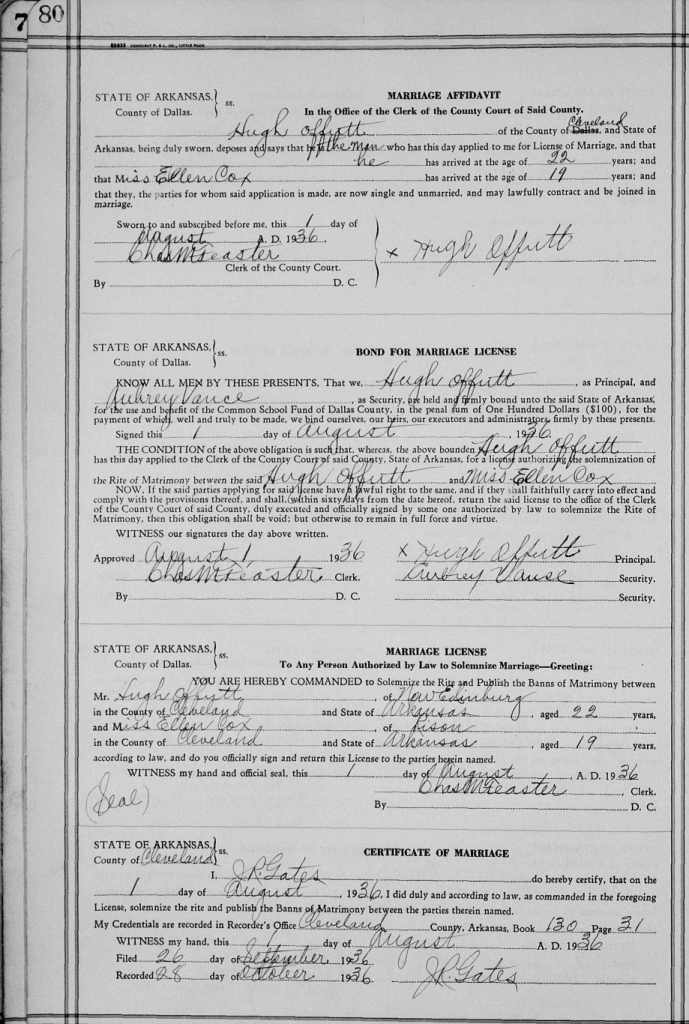 7 80
STATE OF ARKANSAS, ss. MARRIAGE AFFIDAVIT
County of Dallas. In the Office of the Clerk of the County Court of Said County.
Cleveland
Hugh Offutt of the County of Dallas, and State of
Arkansas, being duly sworn, deposes and says that he is the man who has this day applied to me for License of Marriage, and that
he has arrived at the age of 22 years; and
that Miss Ellen Cox has arrived at the age of 19 years; and
that they, the parties for whom said application is made, are now single and unmarried, and may lawfully contract and be joined in
marriage.
Sworn to and subscribed before me, this 1 day of
August A. D. 1936.
x Hugh Offutt
Chas M Feaster
Clerk of the County Court.
By D. C.
STATE OF ARKANSAS, ss. BOND FOR MARRIAGE LICENSE
County of Dallas.
KNOW ALL MEN BY THESE PRESENTS, That we, Hugh Offutt, as Principal, and
Aubrey Vance, as Security, are held and firmly bound unto the said State of Arkansas,
for the use and benefit of the Common School Fund of Dallas County, in the penal sum of One Hundred Dollars ($100), for the
payment of which, well and truly to be made, we bind ourselves, our heirs, our executors and administrators, firmly by these presents.
Signed this 1 day of August, 1936.
THE CONDITION of the above obligation is such that, whereas, the above bounden Hugh Offutt
has this day applied to the Clerk of the County Court of said County, State of Arkansas, for a license authorizing the solemnization of
the Rite of Matrimony between the said Hugh Offutt and Miss Ellen Cox
NOW, If the said parties applying for said license have a lawful right to the same, and if they shall faithfully carry into effect and
comply with the provisions thereof, and shall, (within sixty days from the date hereof, return the said license to the office of the Clerk
of the County Court of said County, duly executed and officially signed by some one authorized by law to solemnize the Rite of
Matrimony, then this obligation shall be void; but otherwise to remain in full force and virtue.
WITNESS our signatures the day above written.
Approved August 1 1936 x Hugh Offutt Principal.
Chas M Feaster Clerk. Aubrey Vanse Security.
By D. C. Security.
STATE OF ARKANSAS, ss. MARRIAGE LICENSE
County of Dallas. To Any Person Authorized by Law to Solemnize Marriage—Greeting:
YOU ARE HEREBY COMMANDED to Solemnize the Rite and Publish the Banns of Matrimony between
Mr. Hugh Offutt, of New Edinburg
in the County of Cleveland and State of Arkansas, aged 22 years,
and Miss Ellen Cox, of Rison
in the County of Cleveland and State of Arkansas, aged 19 years,
according to law, and do you officially sign and return this License to the parties herein named.
WITNESS my hand and official seal, this 1 day of August, A. D. 1936
(Seal) Chas M Feaster, Clerk.
By D. C.
STATE OF ARKANSAS, ss. CERTIFICATE OF MARRIAGE
County of Cleveland
I, J.R. Gates do hereby certify, that on the
1 day of August, 1936, I did duly and according to law, as commanded in the foregoing
License, solemnize the rite and publish the Banns of Matrimony between the parties therein named.
My Credentials are recorded in Recorder's Office Cleveland County, Arkansas, Book 130 Page 31
WITNESS my hand, this 1 day of August A. D. 1936
Filed 26 day of September 1936
Recorded 28 day of October 1936 J.R. Gates